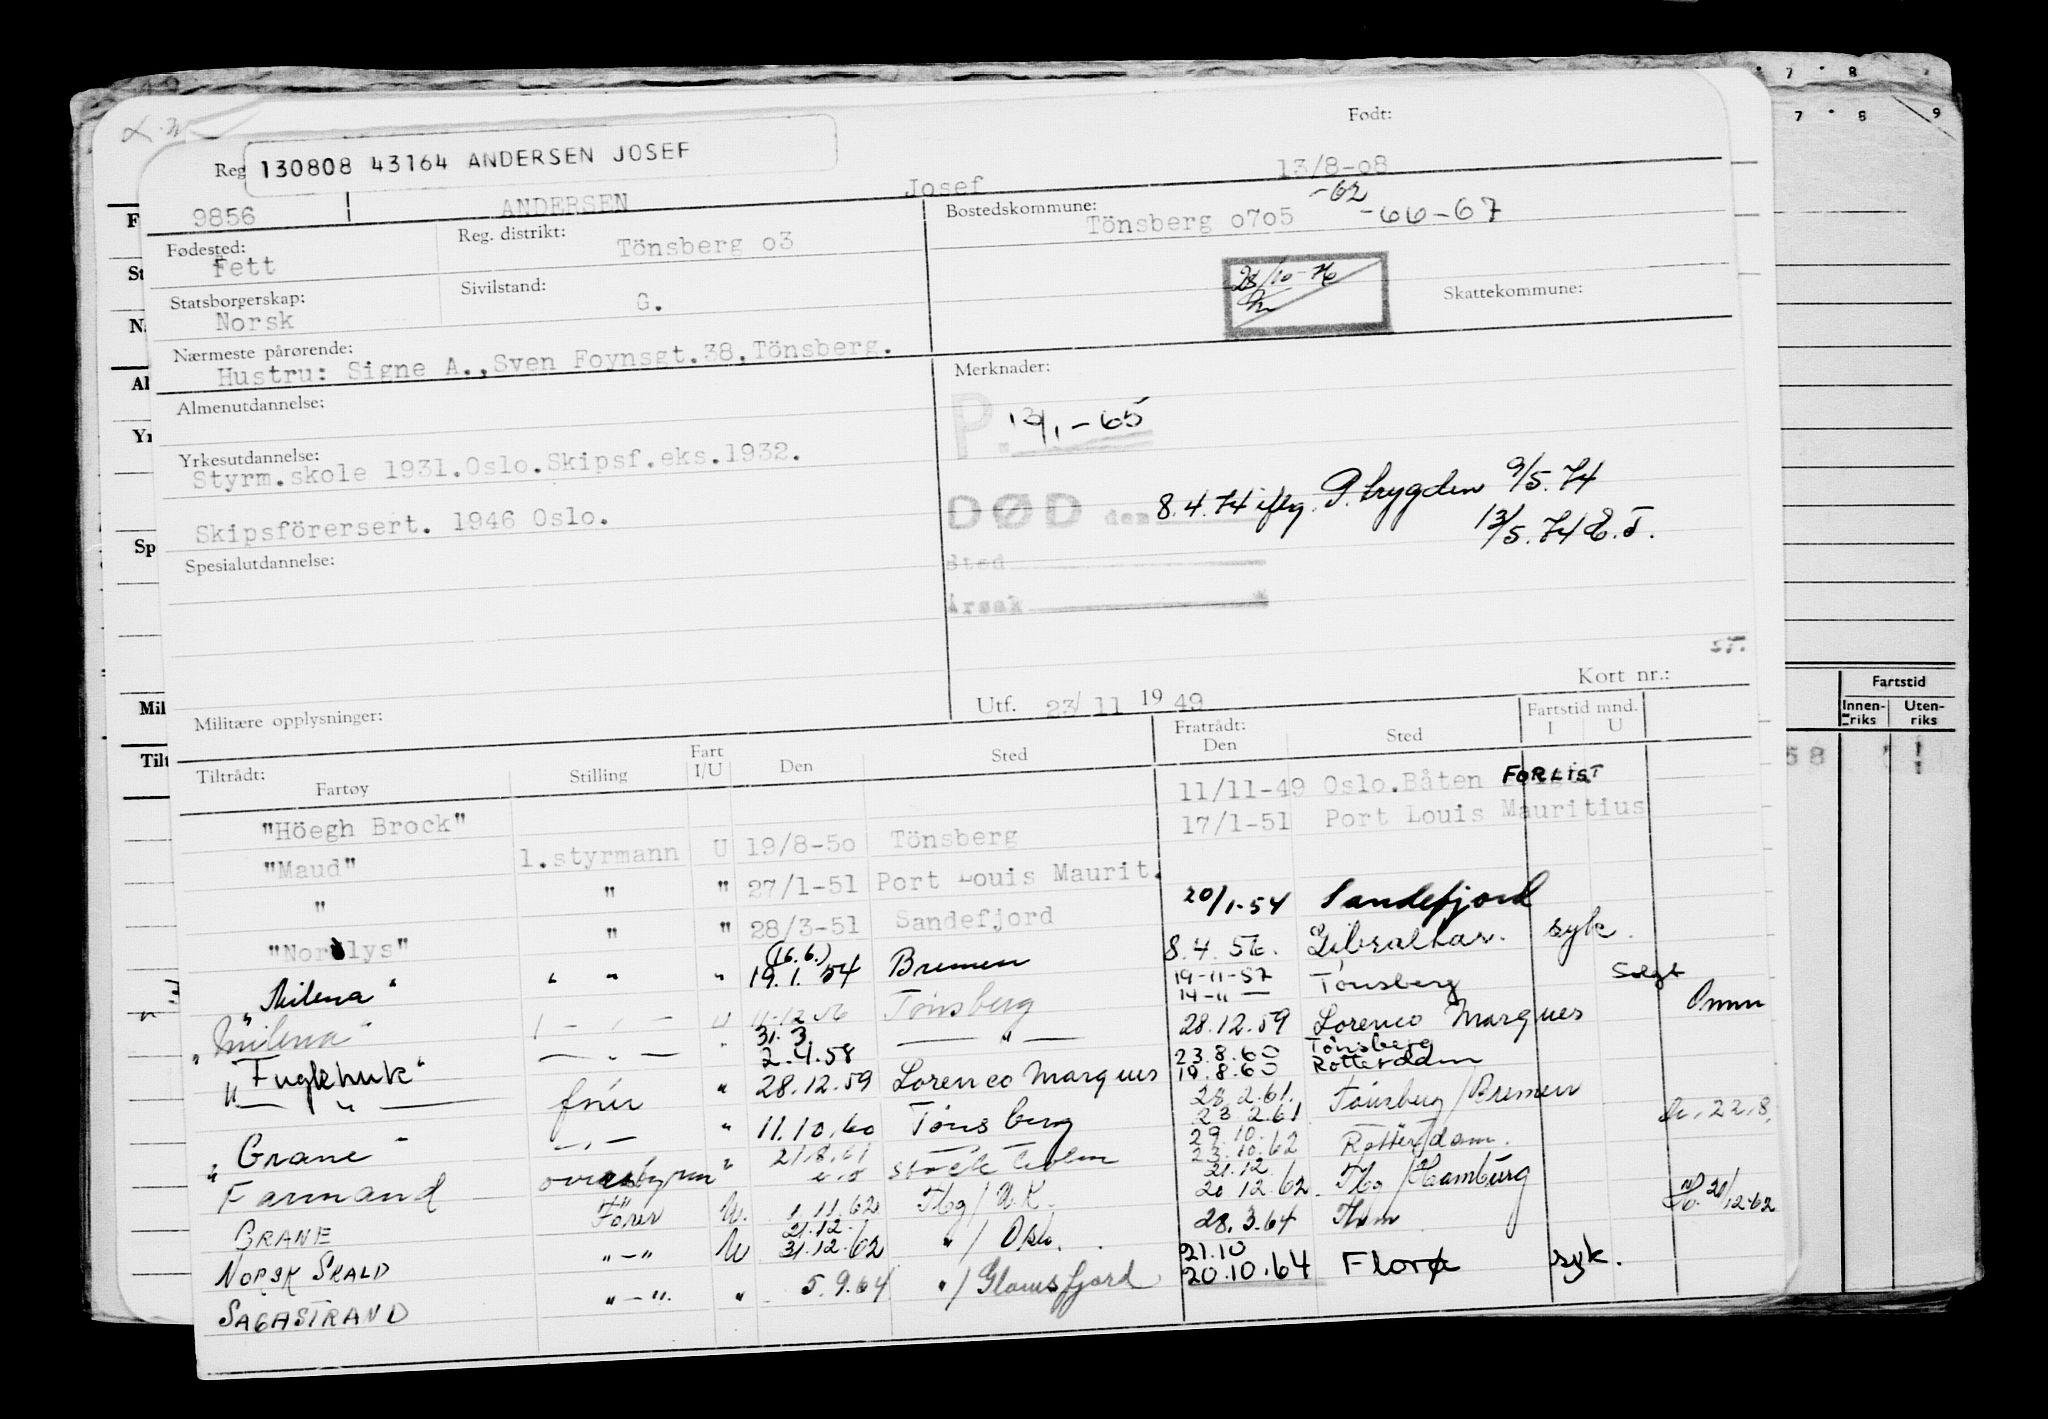 7 8
7 8 9
Født:
Reg 130808 43164 ANDERSEN JOSEF
9856 ANDERSEN Josef 13/8-08
Fødested: Fett
Reg. distrikt: Tönsberg o3
Bostedskommune: Tönsberg o705 -62 -66-67
Statsborgerskap: Norsk
Sivilstand: G.
28/10-76
Skattekommune:
Nærmeste pårørende:
Hustru: Signe A.,Sven Foynsgt.38,Tönsberg.
Merknader:
Almenutdannelse:
P. 13/1-65
Yrkesutdannelse:
Styrm.skole 1931.Oslo.Skipsf.eks.1932.
Skipsförersert. 1946 Oslo.
DØD den 8.4.74 iflg. P.trygden 9/5.74
13/5.74 E.T.
Sted
Årsak
Spesialutdannelse:
ST.
Kort nr.:
Militære opplysninger:
Utf. 23/11 1949
Fartstid
Innen-riks Uten-riks
58
Tiltrådt: Fartøy Stilling Fart I/U Den Sted Fratrådt: Den Sted Fartstid mnd. I U
"Höegh Brock" 11/11-49 Oslo.Båten FORLIST
"Maud" 1.styrmann U 19/8-5o Tönsberg 17/1-51 Port Louis Mauritius
" " " 27/1-51 Port Louis Maurit.
"Nordlys" " " 28/3-51 Sandefjord 20/1-54 Sandefjord
"Milena" " " " (16.6.) 19.1.54 Bremen 8.4.56. Gibraltar. syk.
"Milena" - " - " 11.12.56 Tönsberg 19-11-57 14-"- Tönsberg Solgt
"Fuglehuk" - " - " 31.3. 2.4.58 - " - 28.12.59 Lorenco Marques Omm
" - " - fører " 28.12.59 Lorenco Marques 23.8.60 19.8.60 Tönsberg Rotterdam
"Grane" - " - " 11.10.60 Tönsberg 28.2.61. 23.2.61 Tönsberg/Bremen
Farmand overstyrm " 21.8.61 Stockholm 29.10. 23.10.62 Rotterdam. 22.8.
GRANE Fører U. 1.11.62 Tbg/UK. 21.12. 20.12.62. Tbg/Hamburg
NORSK SKALD "-" U 21.12. 31.12.62 "/Oslo. 28.3.64 20/12-62
SAGASTRAND "-". " 5.9.64 "/Glomfjord 21.10 20.10.64 Florø syk.